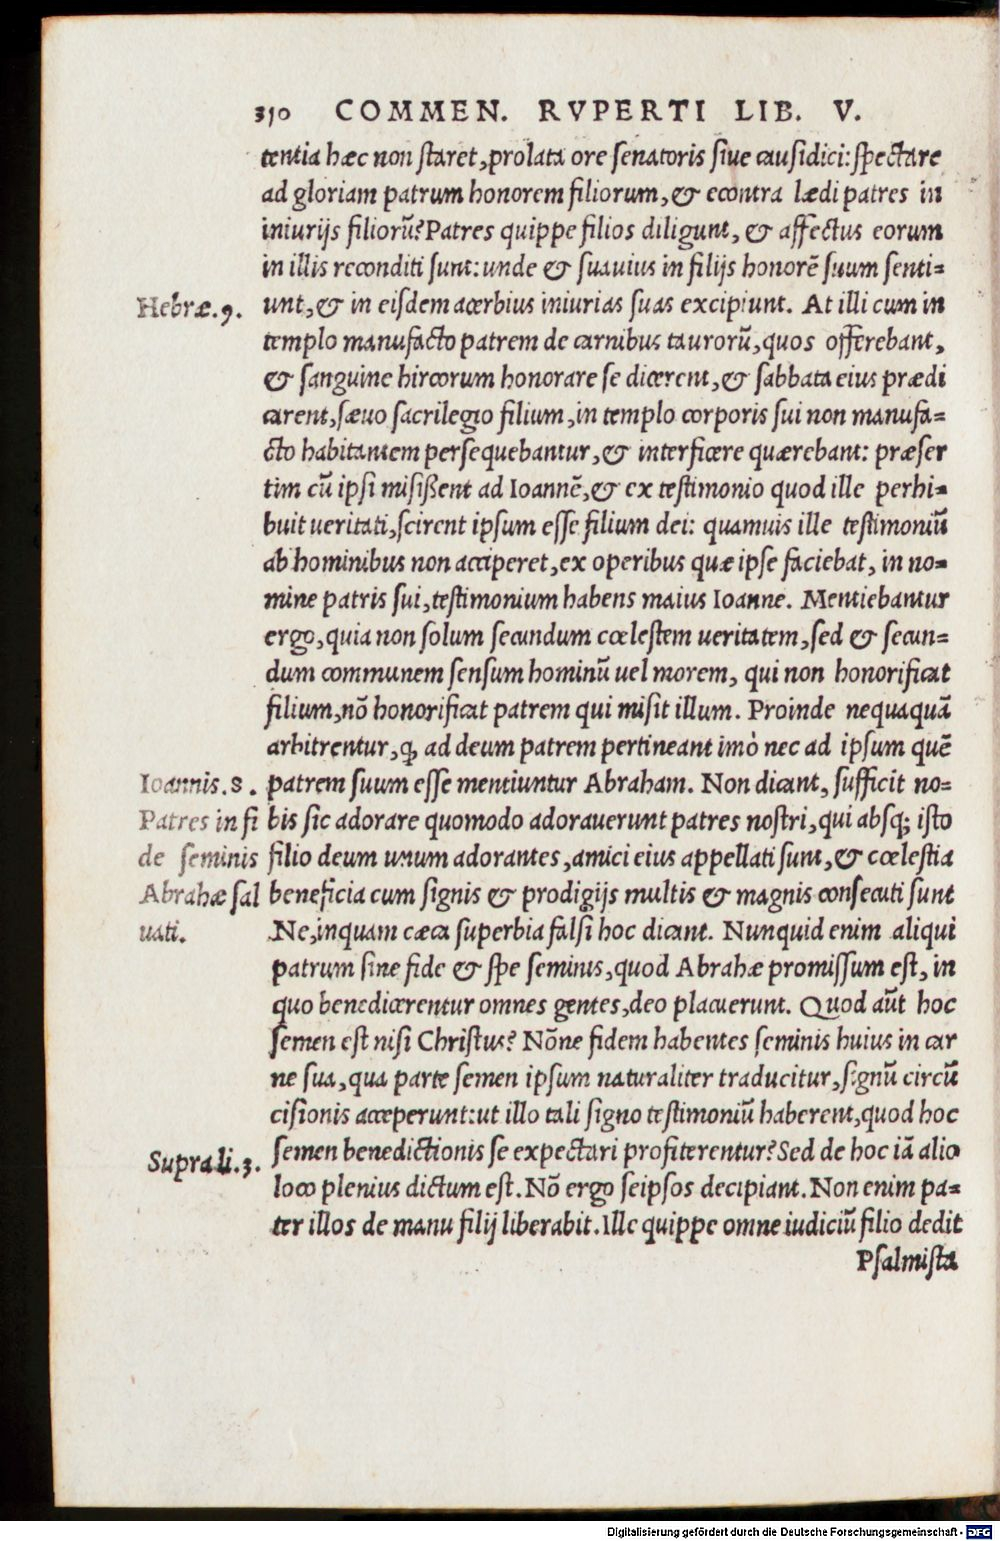 310 COMMEN. RVPERTI LIB. V.
tentia hæc non ſtaret, prolata ore ſenatoris ſiue cauſidici: ſpectare
ad gloriam patrum honorem filiorum, & econtra lædi patres in
iniurijs filiorū? Patres quippe filios diligunt, & affectus eorum
in illis reconditi ſunt: unde & ſuauius in filijs honorē ſuum ſenti=
Hebræ. 9. unt, & in eiſdem acerbius iniurias ſuas excipiunt. At illi cum in
templo manufacto patrem de carnibus taurorū, quos offerebant,
& ſanguine hircorum honorare ſe dicerent, & ſabbata eius prædi
carent, ſæuo ſacrilegio filium, in templo corporis ſui non manufa=
cto habitantem perſequebantur, & interficere quærebant: præſer
tim cū ipſi miſiſſent ad Ioannē, & ex teſtimonio quod ille perhi=
buit ueritati, ſcirent ipſum eſſe filium dei: quamuis ille teſtimoniū
ab hominibus non acciperet, ex operibus quæ ipſe faciebat, in no=
mine patris ſui, teſtimonium habens maius Ioanne. Mentiebantur
ergo, quia non ſolum ſecundum cœleſtem ueritatem, ſed & ſecun=
dum communem ſenſum hominū uel morem, qui non honorificat
filium, nō honorificat patrem qui miſit illum. Proinde nequaquā
arbitrentur, ꝙ ad deum patrem pertineant imò nec ad ipſum quē
Ioannis. 8. patrem ſuum eſſe mentiuntur Abraham. Non dicant, ſufficit no=
Patres in fi bis ſic adorare quomodo adorauerunt patres noſtri, qui abſq; iſto
de ſeminis filio deum unum adorantes, amici eius appellati ſunt, & cœleſtia
Abrahæ ſal beneficia cum ſignis & prodigijs multis & magnis conſecuti ſunt
uati. Ne, inquam cæca ſuperbia falſi hoc dicant. Nunquid enim aliqui
patrum ſine fide & ſpe ſeminis, quod Abrahæ promiſſum eſt, in
quo benedicerentur omnes gentes, deo placuerunt. Quod aūt hoc
ſemen eſt niſi Chriſtus? Nōne fidem habentes ſeminis huius in car
ne ſua, qua parte ſemen ipſum naturaliter traducitur, ſignū circū
ciſionis acceperunt: ut illo tali ſigno teſtimoniū haberent, quod hoc
Supra li. 3. ſemen benedictionis ſe expectari profiterentur? Sed de hoc iā alio
loco plenius dictum eſt. Nō ergo ſeipſos decipiant. Non enim pa=
ter illos de manu filij liberabit. Ille quippe omne iudiciū filio dedit
Pſalmiſta
Digitalisierung gefördert durch die Deutsche Forschungsgemeinschaft - DFG